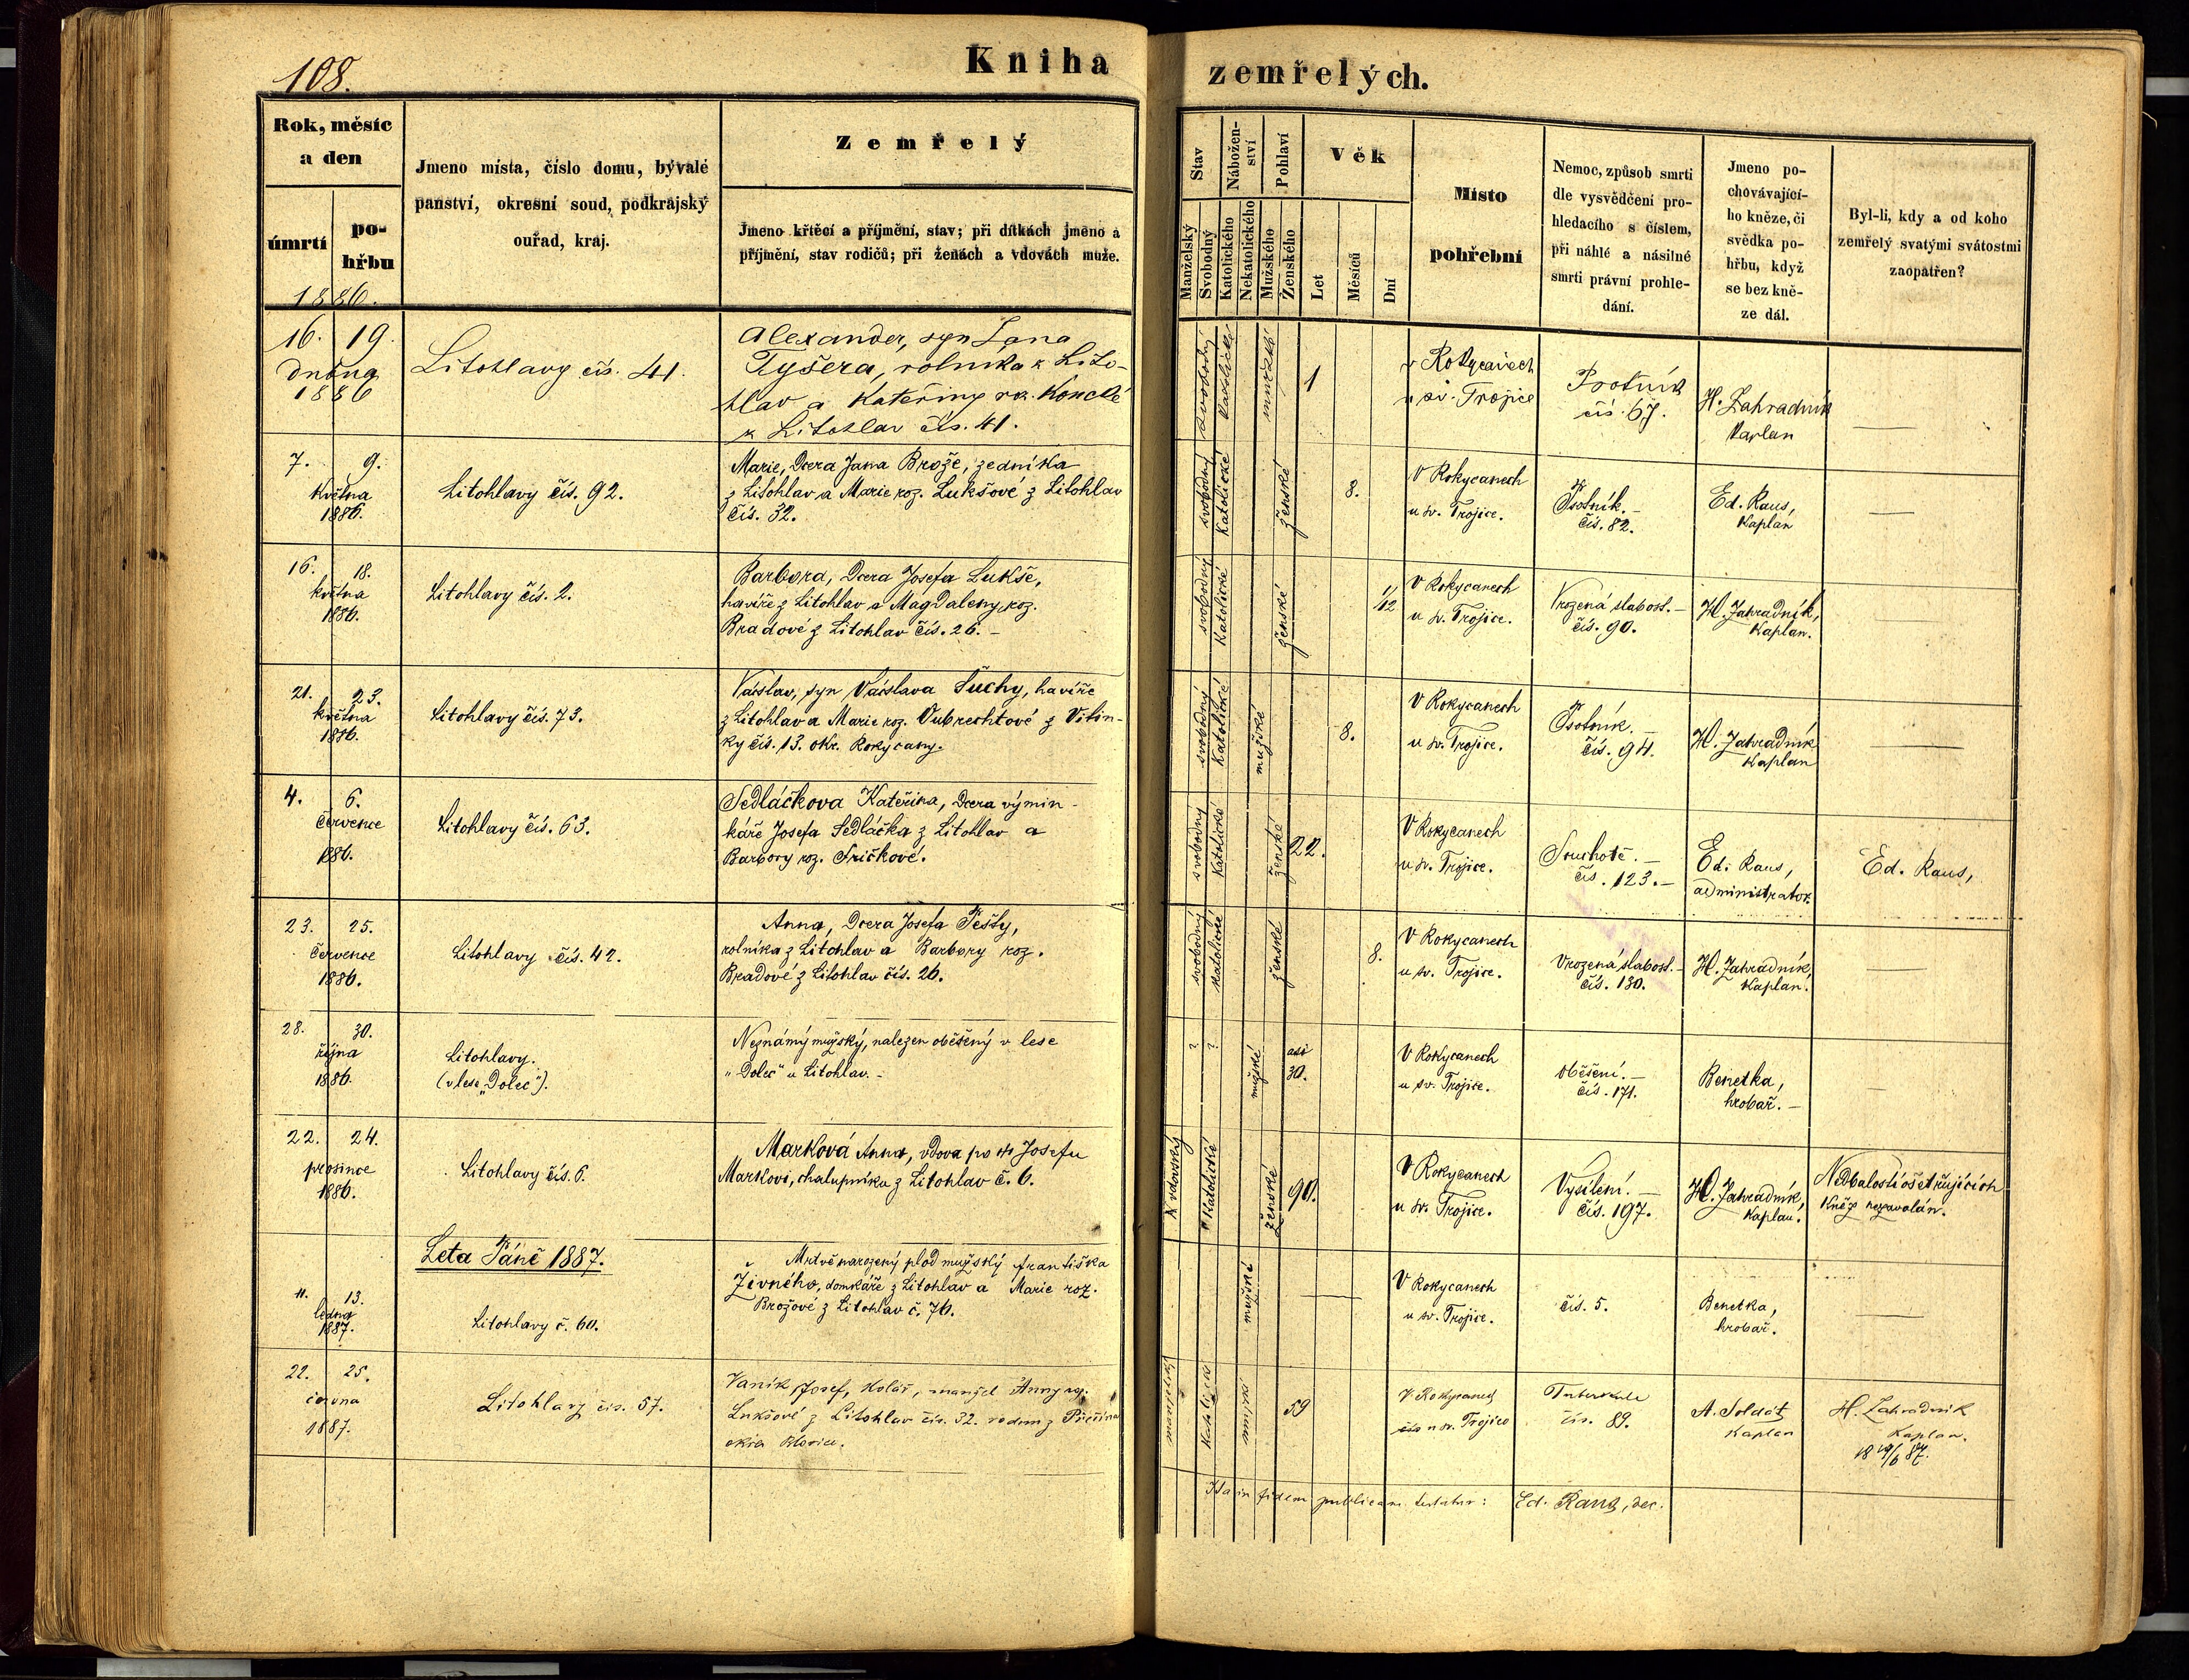 108.
Kniha zemřelých.
Rok, měsíc
a den
úmrtí
po-
hřbu
1886.
Jmeno místa, číslo domu, bývalé
panství, okresní soud, podkrajský
ouřad, kraj.
Zemřelý
Jmeno křtěcí a příjmění, stav; při dítkách jmeno a
příjmění, stav rodičů; při ženách a vdovách muže.
Stav
Manželský
Svobodný
Nábožen-
ství
Katolického
Nekatolického
Pohlaví
Mužského
Ženského
Věk
Let
Měsíců
Dní
Místo
pohřební
Nemoc, způsob smrti
dle vysvědčení pro-
hledacího s číslem,
při náhlé a násilné
smrti právní prohle-
dání.
Jmeno po-
chovávající-
ho kněze, či
svědka po-
hřbu, když
se bez kně-
ze dál.
Byl-li, kdy a od koho
zemřelý svatými svátostmi
zaopatřen?
16. 19.
dubna
1886
Litohlavy čís. 41.
Alexander, syn Jana
Tyšera, rolníka z Lito-
hlav a Kateřiny roz.
z Litohlav čís. 41.
svobodný
katolické
mužské
1
v Rokycanech
u sv. Trojice
Psotník
čís. 67.
H. Zahradník
Kaplan
—
7. 9.
května
1886.
Litohlavy čís. 92.
Marie, dcera Jana Brože, zedníka
z Litohlav a Marie roz. Lukšové z Litohlav
čís. 32.
svobodný
Katolické
ženské
8.
V Rokycanech
u sv. Trojice.
Psotník. –
čís. 82.
Ed. Raus,
Kaplan
—
16. 18.
května
1886.
Litohlavy čís. 2.
Barbora, dcera Josefa Lukše,
havíře z Litohlav a Magdaleny roz.
Bradové z Litohlav čís. 26. –
svobodný
Katolické
ženské
1/12
V Rokycanech
u sv. Trojice.
Vrozená slabost. –
čís. 90.
H. Zahradník,
Kaplan.
21. 23.
května
1886.
Litohlavy čís. 73.
Václav, syn Václava Suchy, havíře
z Litohlav a Marie roz. Oubrechtové z Vitin-
ky čís. 13. okr. Rokycany.
svobodný
Katolické
mužské
8.
V Rokycanech
u sv. Trojice.
Psotník. –
čís. 94.
H. Zahradník
Kaplan
—
4. 6.
července
1886.
Litohlavy čís. 63.
Sedláčkova Kateřina, dcera výmin-
káře Josefa Sedláčka z Litohlav a
Barbory roz. Fričkové.
svobodný
Katolické
ženské
22.
V Rokycanech
u sv. Trojice.
Souchotě. –
čís. 123. –
Ed. Raus,
administrator.
Ed. Raus,
23. 25.
července
1886.
Litohlavy čís. 42.
Anna, dcera Josefa Pešty,
rolníka z Litohlav a Barbory roz.
Bradové z Litohlav čís. 26.
svobodný
Katolické
ženské
8.
V Rokycanech
u sv. Trojice.
Vrozená slabost. –
čís. 130.
H. Zahradník,
Kaplan.
—
28. 30.
října
1886.
Litohlavy.
(v lese „Dolec“).
Neznámý mužský, nalezen oběšený v lese
„Dolec“ u Litohlav. –
?
?
mužské
asi
30.
V Rokycanech
u sv. Trojice.
Oběšení. –
čís. 171.
Benetka,
hrobař. –
—
22. 24.
prosince
1886.
Litohlavy čís. 6.
Marková Anna, vdova po † Josefu
Markovi, chalupníku z Litohlav č. 6.
vdovský
Katolické
ženské
90.
V Rokycanech
u sv. Trojice.
Vysílení. –
čís. 197.
H. Zahradník,
Kaplan.
Nedbalostí ošetřujících
Kněz nezavolán.
Leta Páně 1887.
11. 13.
ledna
1887.
Litohlavy č. 60.
Mrtvě narozený plod mužský Františka
Živného, domkáře z Litohlav a Marie roz.
Brožové z Litohlav č. 76.
mužské
—
V Rokycanech
u sv. Trojice.
čís. 5.
Benetka,
hrobař.
—
22. 25.
června
1887.
Litohlavy čís. 57.
Vaník Josef, Kolář, manžel Anny roz.
Lukšové z Litohlav čís. 32. rodem z
manželský
Katolické
mužské
59
V Rokycanech
u sv. Trojice
Tuberkule
čís. 89.
A. Soldát
Kaplan
H. Zahradník
Kaplan.
18 19/6 87.
Ita in fidem publicam testatur: Ed. Raus, dec.